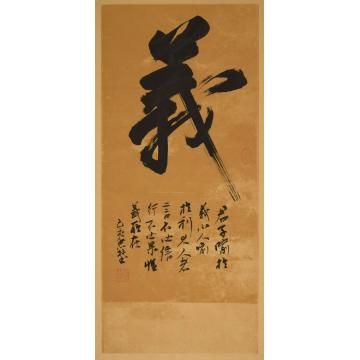 義
君子喻於
義小人喻
於利大人者
言不必信
行不必果惟
義所在